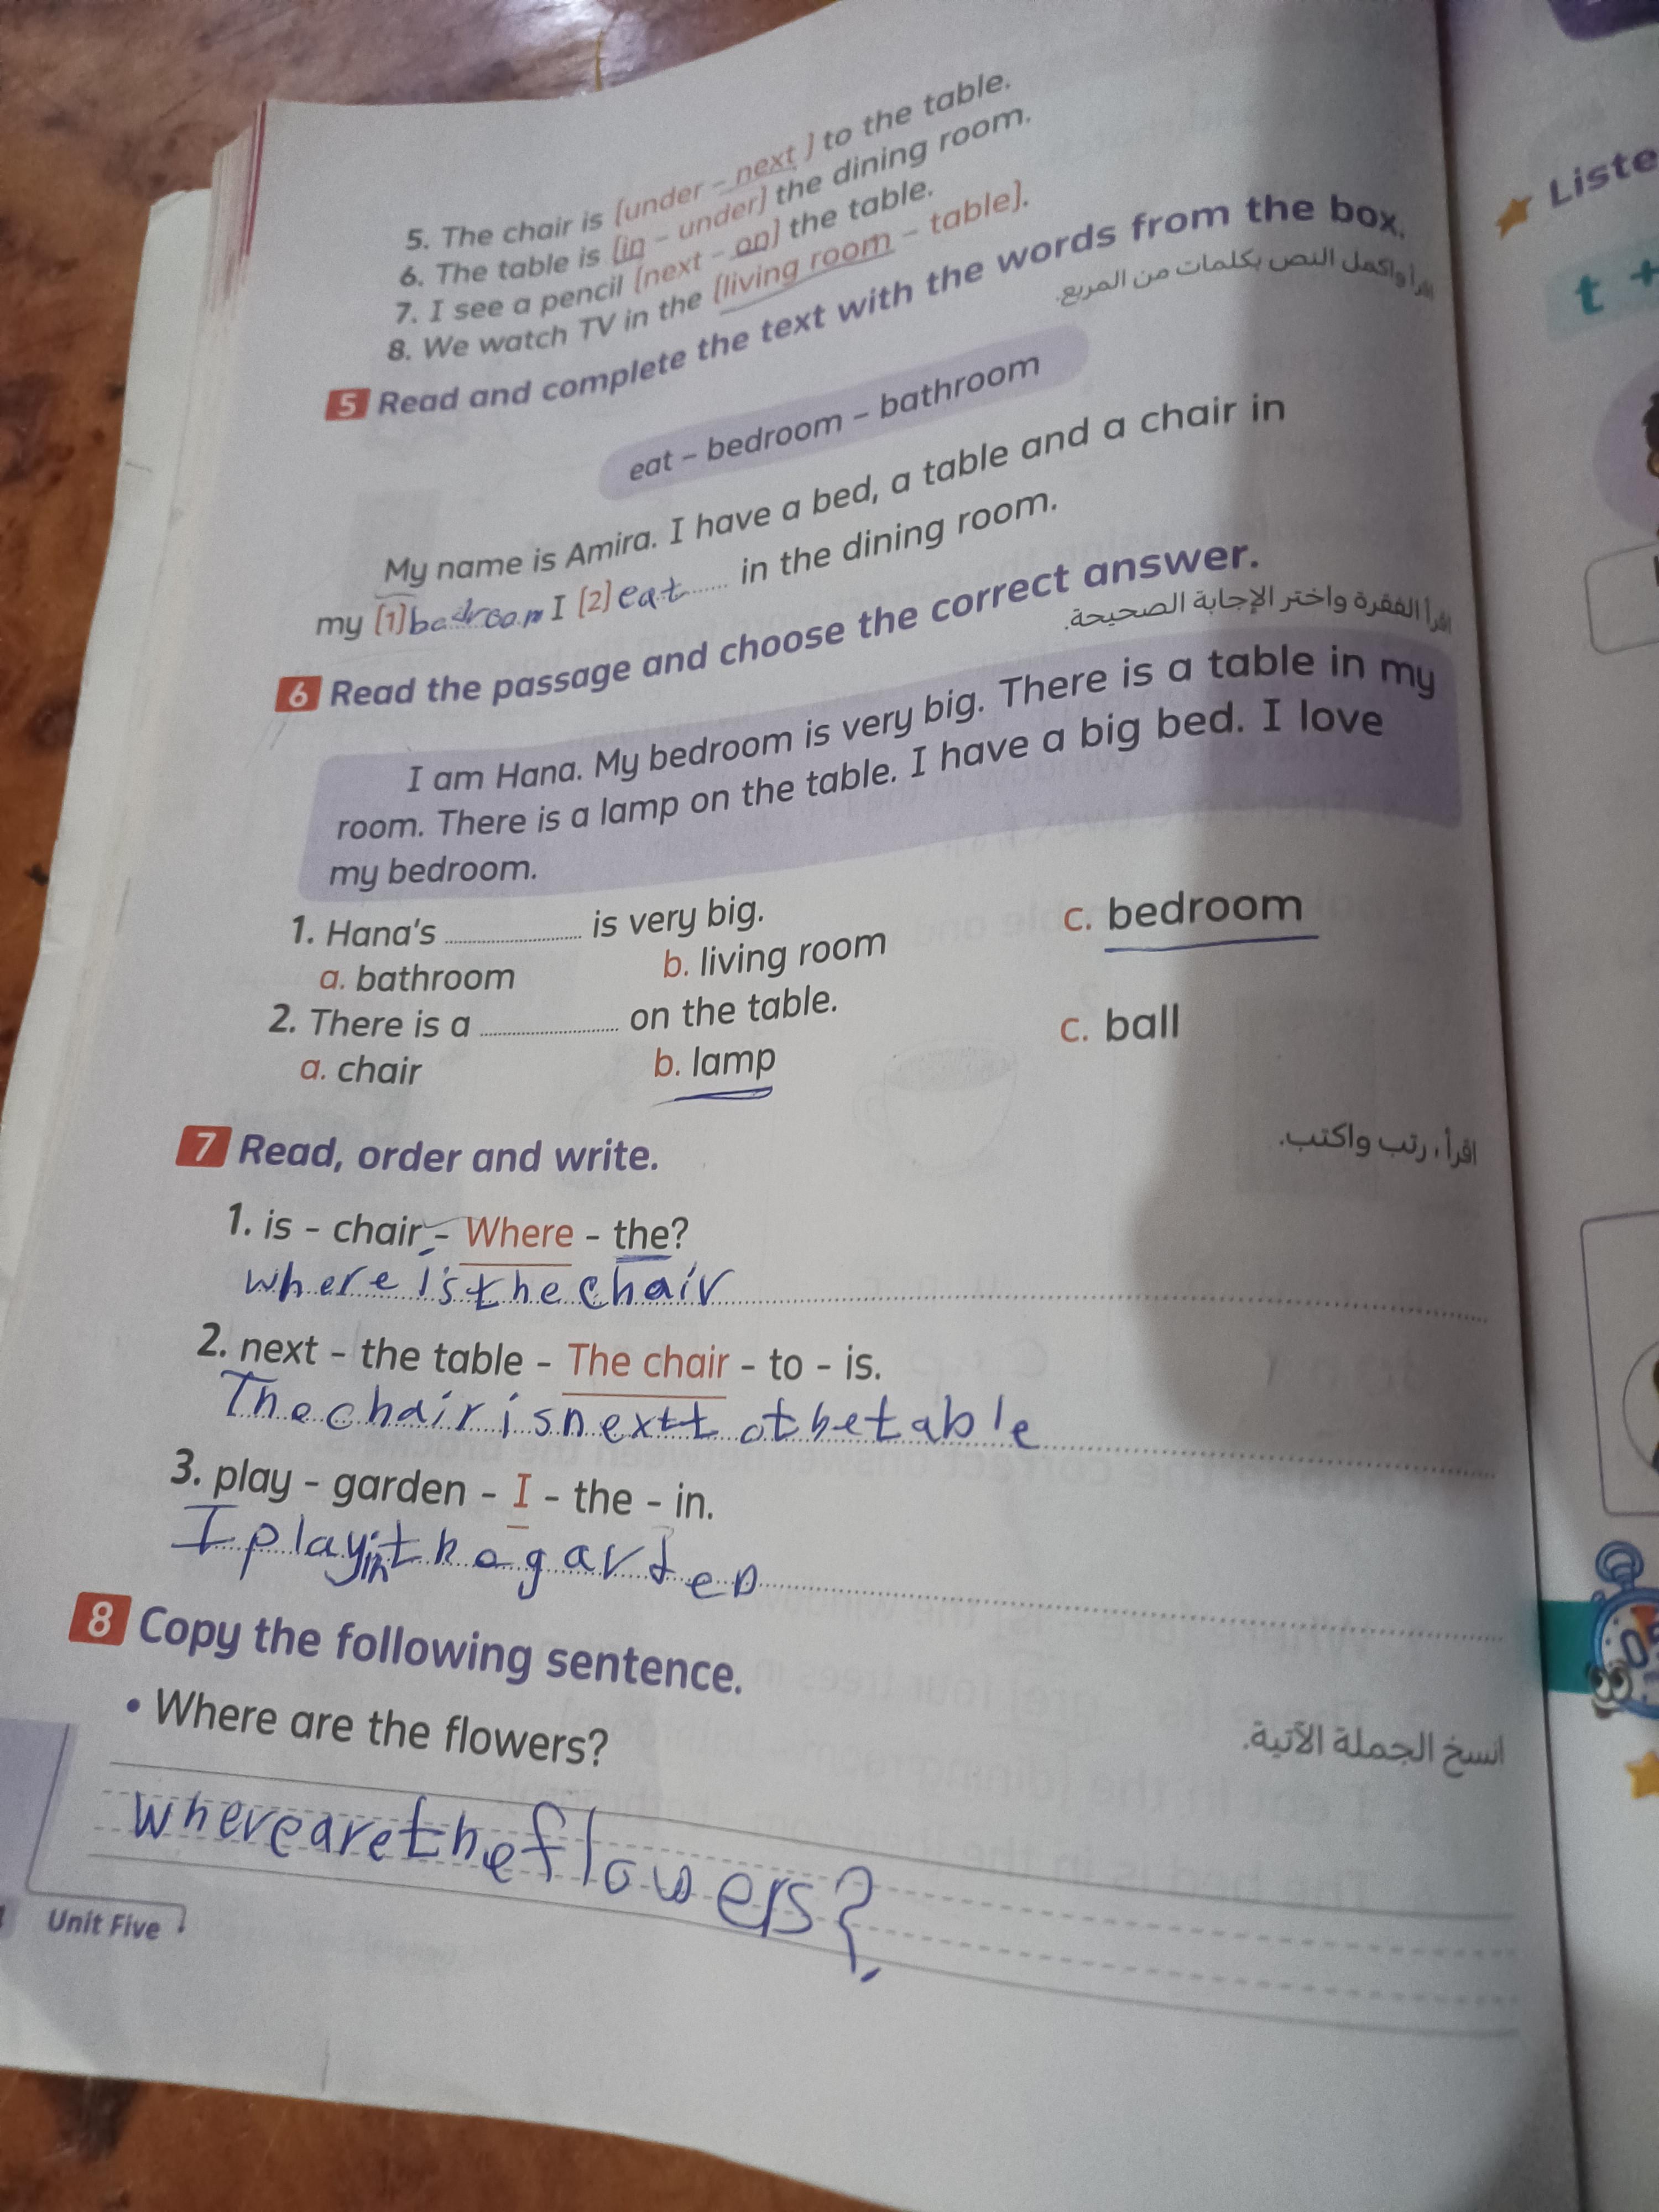 5. The chair is (under – next) to the table.
6. The table is (in – under) the dining room.
7. I see a pencil (next – on) the table.
8. We watch TV in the (living room – table).
5 Read and complete the text with the words from the box.
اقرأ واكمل النص بكلمات من المربع.
eat – bedroom – bathroom
My name is Amira. I have a bed, a table and a chair in
my (1) bedroom I (2) eat in the dining room.
6 Read the passage and choose the correct answer.
اقرأ الفقرة واختر الإجابة الصحيحة.
I am Hana. My bedroom is very big. There is a table in my
room. There is a lamp on the table. I have a big bed. I love
my bedroom.
1. Hana's is very big.
a. bathroom b. living room c. bedroom
2. There is a on the table.
a. chair b. lamp c. ball
7 Read, order and write.
اقرأ، رتب واكتب.
1. is – chair – Where – the?
where is the chair
2. next – the table – The chair – to – is.
The chair is next to the table
3. play – garden – I – the – in.
I play in the garden
8 Copy the following sentence.
انسخ الجملة الآتية.
• Where are the flowers?
where are the flowers?
Unit Five
Liste
t +